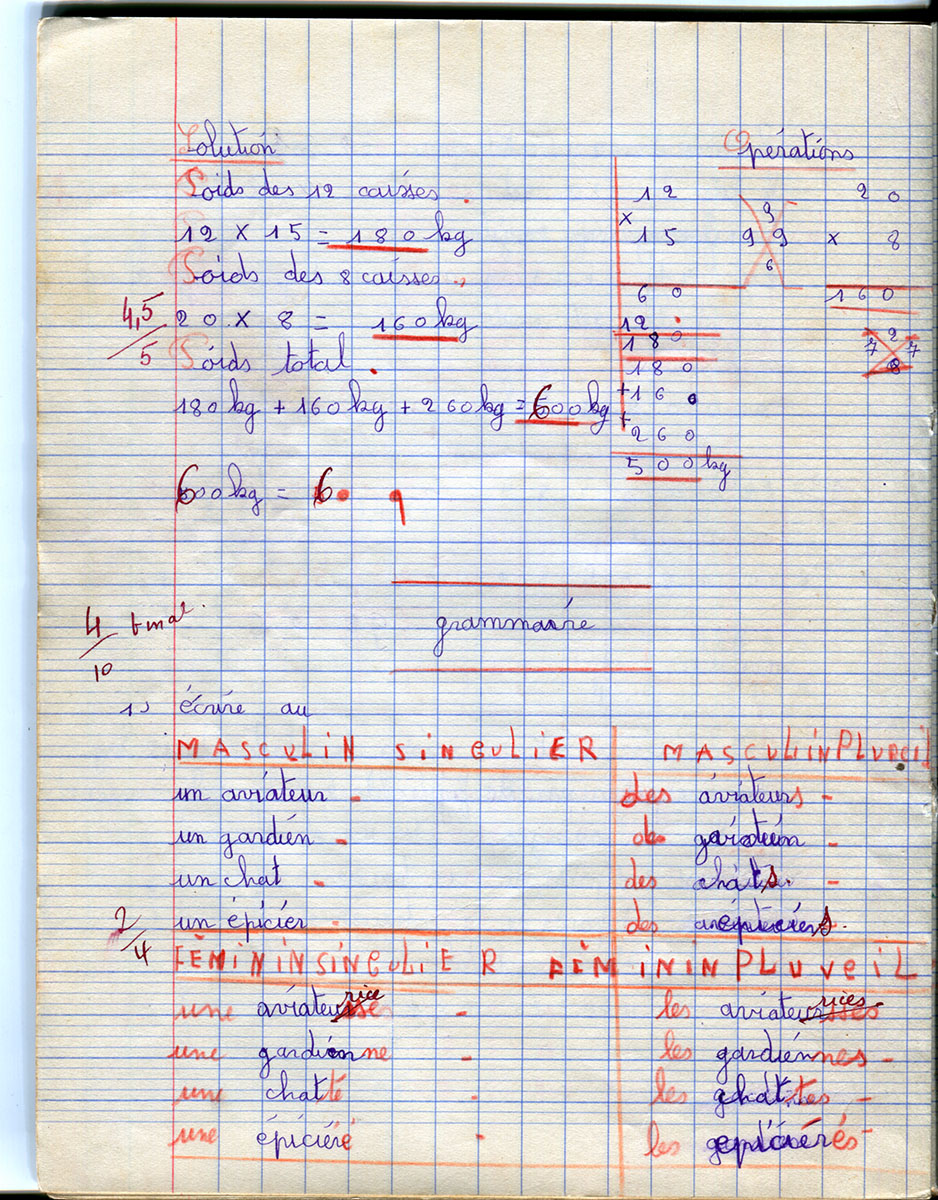 Solution
Opérations
Poids des 12 caisses.
12 × 15 = 180 kg
Poids des 8 caisses.
4,5/5
20 × 8 = 160 kg
Poids total.
180 kg + 160 kg + 260 kg = 600 kg
600 kg = 6 q
12
× 15
60
12.
180
9
9 9
6
20
× 8
160
2
7 7
8
180
+ 160
+ 260
500 kg
4/10 t mal.
grammaire
1) écrire au
MASCULIN SINGULIER MASCULIN PLUVEIL
un aviateur - des aviateurs -
un gardien - de
un chat - des chats. -
2/4
un épicier - des
FÉMININ SINGULIER FÉMININ PLUVEIL
une aviateusse rice - les aviateursses rices
une gardienne - les gardiennes -
une chatte - les chattes -
une épicière - les épicierés -